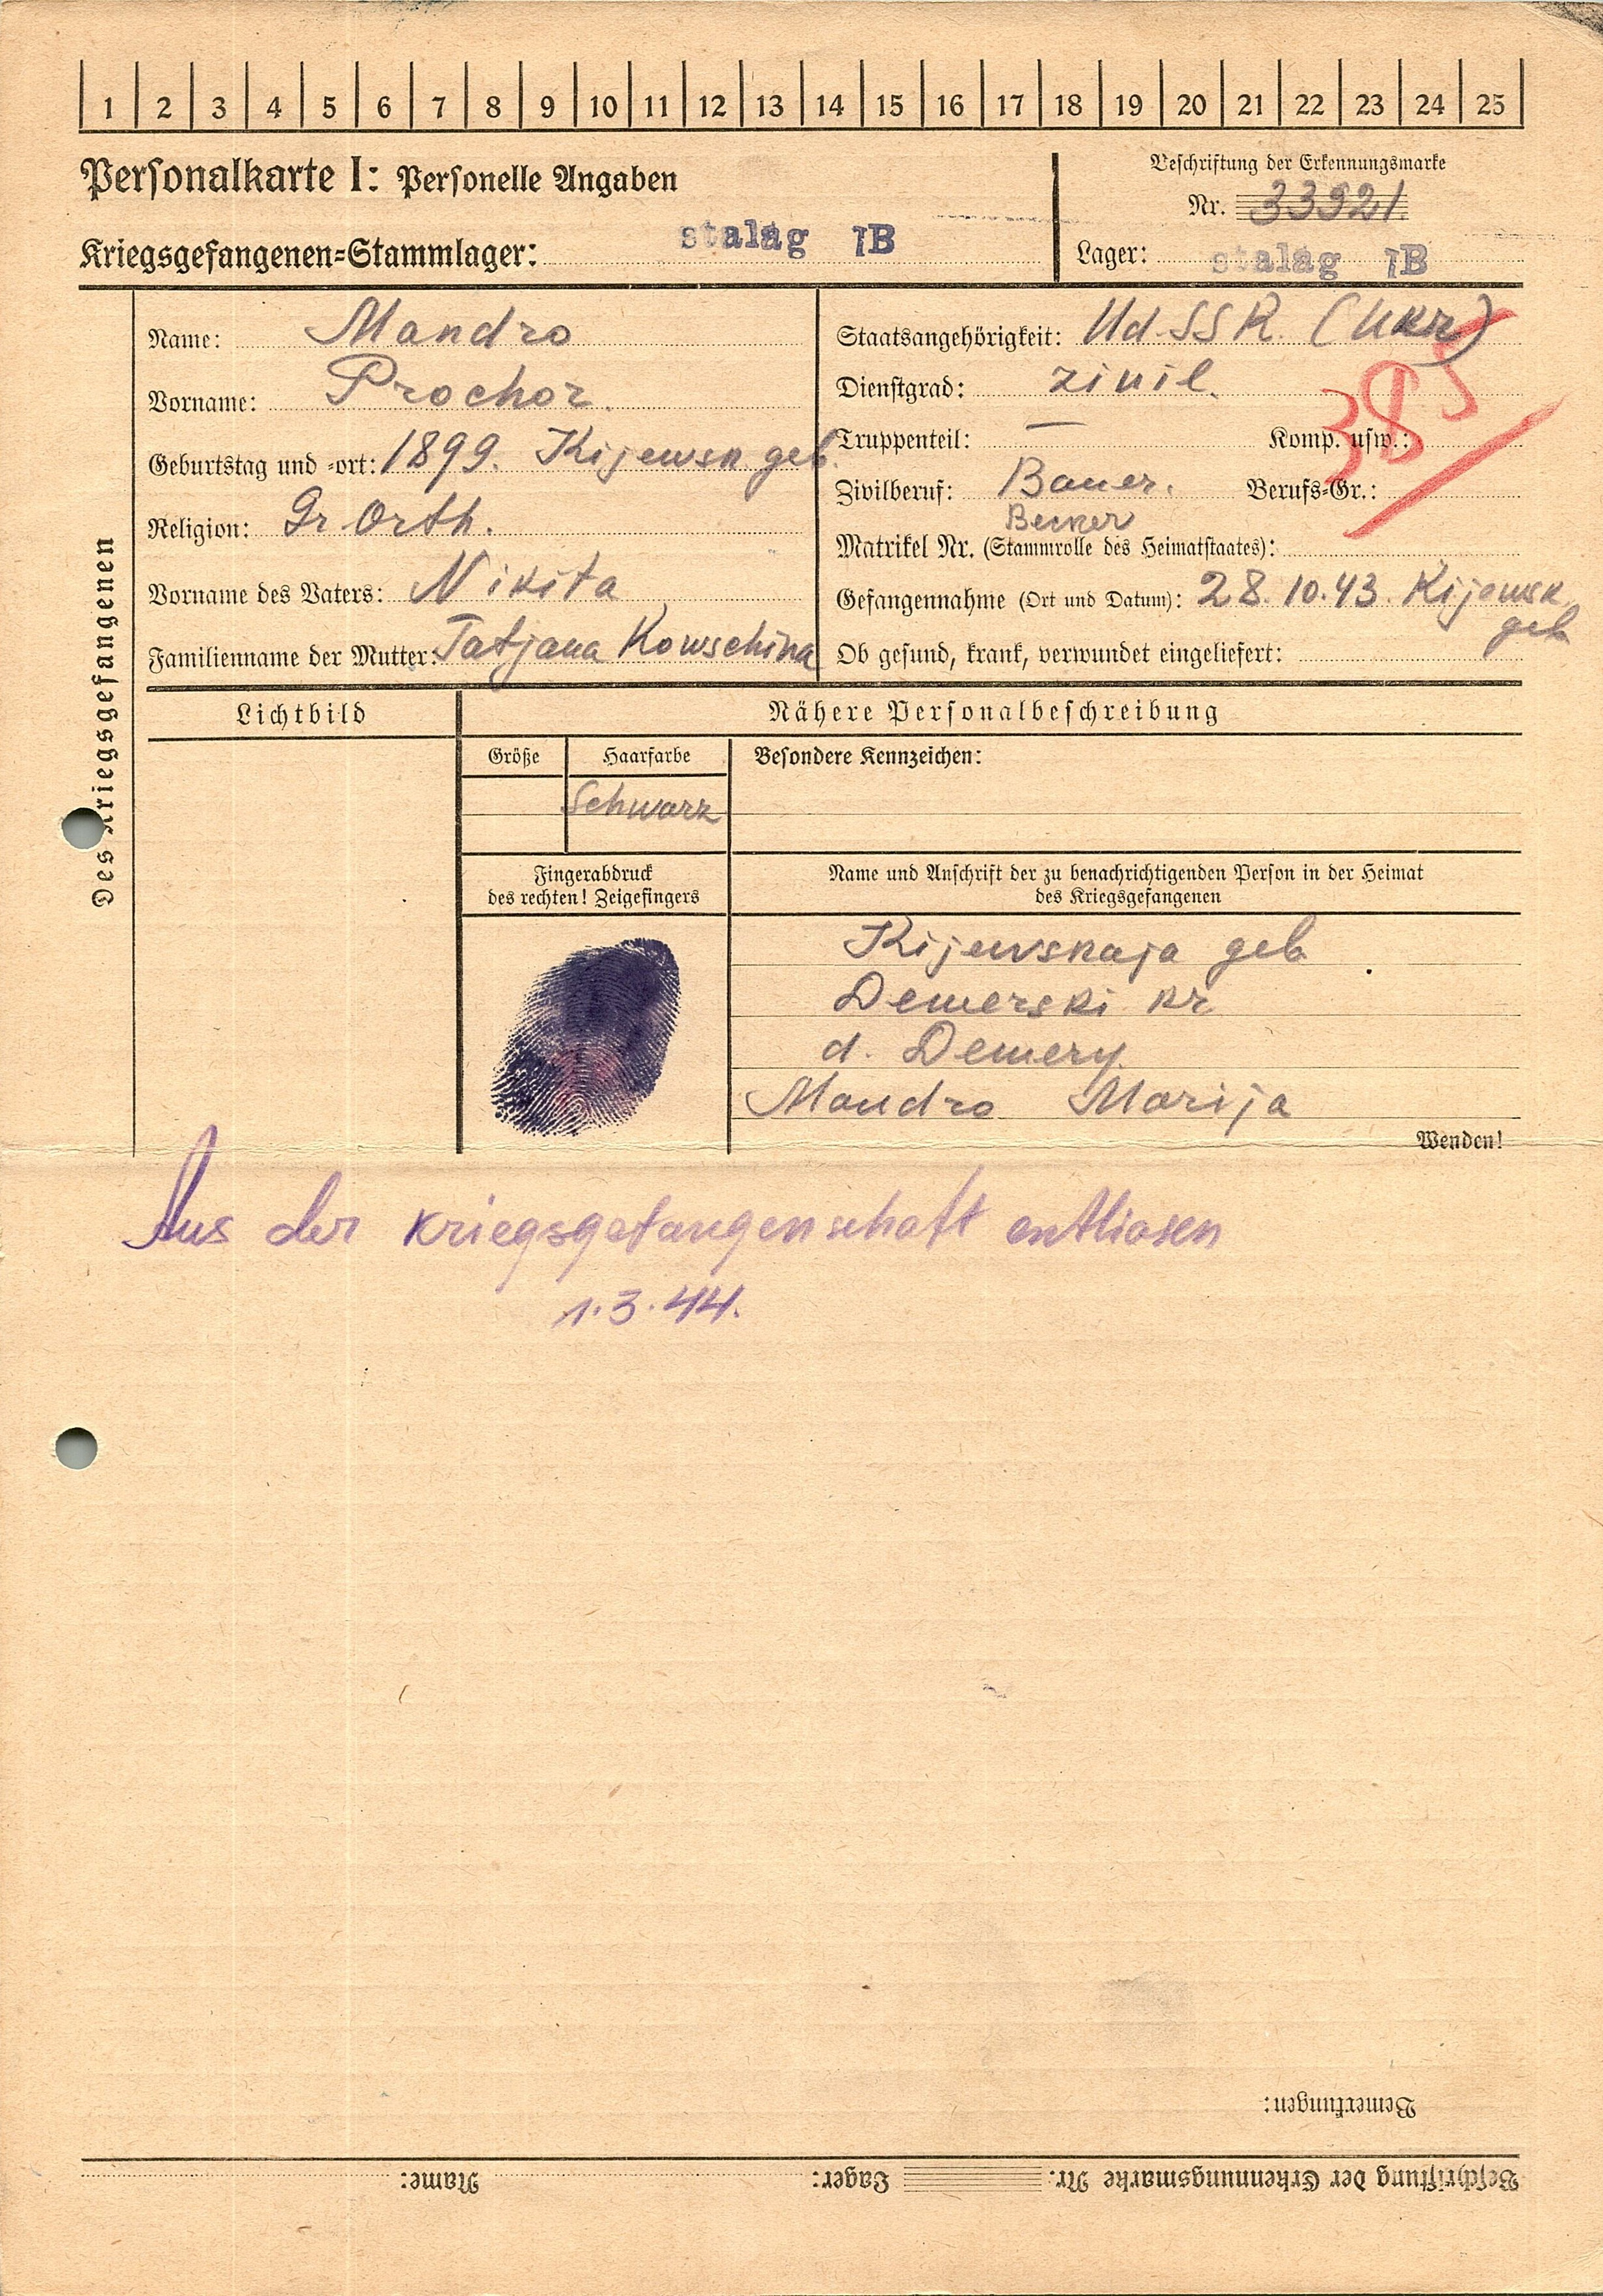 1 2 3 4 5 6 7 8 9 10 11 12 13 14 15 16 17 18 19 20 21 22 23 24 25
Personalkarte I: Personelle Angaben
Beschriftung der Erkennungsmarke
Nr. 33921
Kriegsgefangenen=Stammlager: stalag IB
Lager: stalag IB
Des Kriegsgefangenen
Name: Mandro
Vorname: Prochor.
Geburtstag und =ort: 1899. Kijewsk geb.
Religion: Gr. Orth.
Vorname des Vaters: Nikita
Familienname der Mutter: Tatjana Kowschina
Staatsangehörigkeit: UdSSR. (Ukr)
Dienstgrad: zivil.
Truppenteil: — Komp. usw.:
385
Zivilberuf: Bauer. Berufs=Gr.:
Matrikel Nr. (Stammrolle des Heimatstaates):
Gefangennahme (Ort und Datum): 28.10.43. Kijewsk
geb
Ob gesund, krank, verwundet eingeliefert:
Lichtbild
Nähere Personalbeschreibung
Größe Haarfarbe Besondere Kennzeichen:
Schwarz
Fingerabdruck
des rechten! Zeigefingers
Name und Anschrift der zu benachrichtigenden Person in der Heimat
des Kriegsgefangenen
Kijewskaja geb
Demerski kr
d. Demery.
Mandro Marija
Wenden!
Aus der Kriegsgefangenschaft entliasen
1.3.44.
Bemerkungen:
Beschriftung der Erkennungsmarke Nr. Lager: Name: